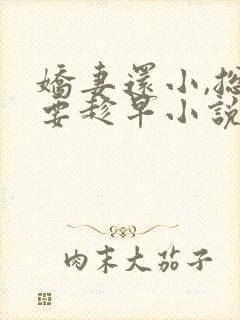 嬌妻還小,總
要趁早小說
肉末大茄子